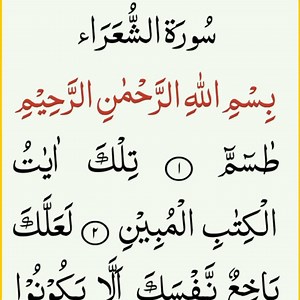 سُورَةُ الشُّعَرَاء
بِسْمِ اللهِ الرَّحْمٰنِ الرَّحِيْمِ
طٰسٓمّٓ ۝١ تِلْكَ اٰيٰتُ
الْكِتٰبِ الْمُبِيْنِ ۝٢ لَعَلَّكَ
بَاخِعٌ نَّفْسَكَ اَلَّا يَكُوْنُوْا